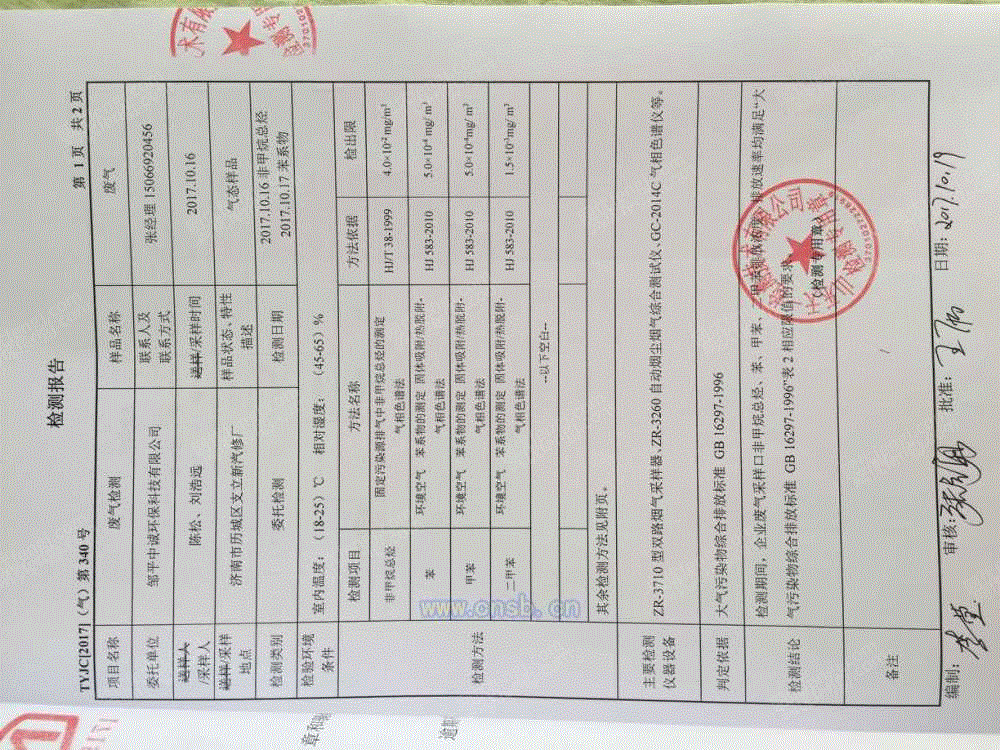 检测报告
TYJC[2017]（气）第 340 号
第 1 页 共 2 页
项目名称 废气检测 样品名称 废气
委托单位 邹平中诚环保科技有限公司 联系人及
联系方式 张经理 15066920456
送样人
/采样人 陈松、刘浩远 送样/采样时间 2017.10.16
送样/采样
地点 济南市历城区支立新汽修厂 样品状态、特性
描述 气态样品
检测类别 委托检测 检测日期 2017.10.16 非甲烷总烃
2017.10.17 苯系物
检验环境
条件 室内温度：（18-25）℃ 相对湿度：（45-65）%
检测方法
检测项目 方法名称 方法依据 检出限
非甲烷总烃 固定污染源排气中非甲烷总烃的测定
气相色谱法 HJ/T 38-1999 4.0×10⁻² mg/m³
苯 环境空气 苯系物的测定 固体吸附/热脱附-
气相色谱法 HJ 583-2010 5.0×10⁻⁴ mg/ m³
甲苯 环境空气 苯系物的测定 固体吸附/热脱附-
气相色谱法 HJ 583-2010 5.0×10⁻⁴mg/ m³
二甲苯 环境空气 苯系物的测定 固体吸附/热脱附-
气相色谱法 HJ 583-2010 1.5×10⁻³mg/ m³
--以下空白--
其余检测方法见附页。
主要检测
仪器设备 ZR-3710 型双路烟气采样器、ZR-3260 自动烟尘烟气综合测试仪、GC-2014C 气相色谱仪等。
判定依据 大气污染物综合排放标准 GB 16297-1996
检测结论 检测期间，企业废气采样口非甲烷总烃、苯、甲苯、二甲苯排放浓度、排放速率均满足“大
气污染物综合排放标准 GB 16297-1996”表 2 相应限值的要求。
（检测专用章）
备注
编制： 审核： 批准： 日期：2017.10.19
www.cnsb.cn
术有限
章和
逾期